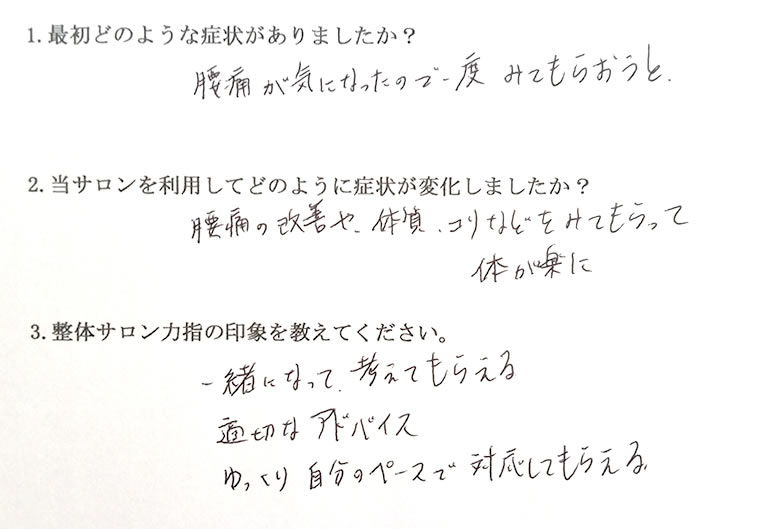 1. 最初どのような症状がありましたか？
腰痛が気になったので一度 みてもらおうと.
2. 当サロンを利用してどのように症状が変化しましたか？
腰痛の改善や、体質、コリなどをみてもらって
体が楽に
3. 整体サロン力指の印象を教えてください。
一緒になって、考えてもらえる
適切な アドバイス
ゆっくり 自分のペースで 対応してもらえる。